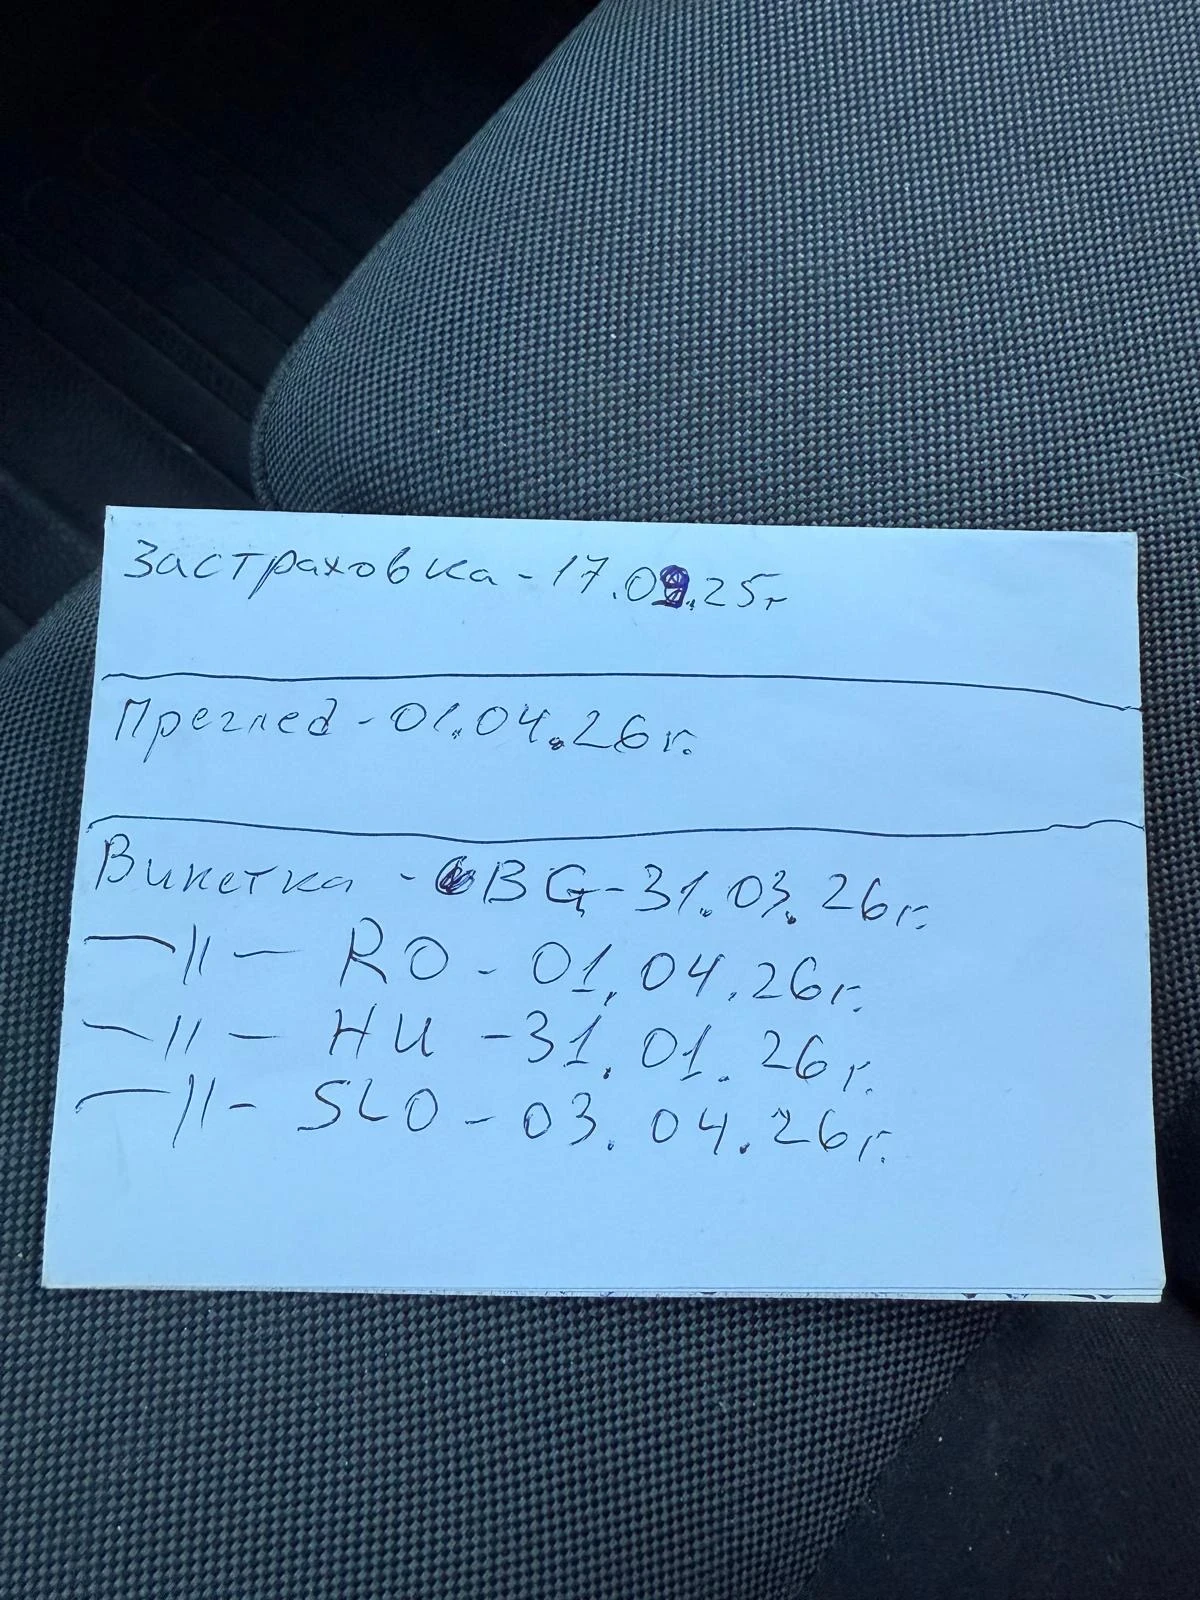 Застраховка - 17.09.25г
Преглед - 01.04.26г.
Винетка - BG - 31.03.26г.
—〃— RO - 01.04.26г.
—〃— HU - 31.01.26г.
—〃— SLO - 03.04.26г.